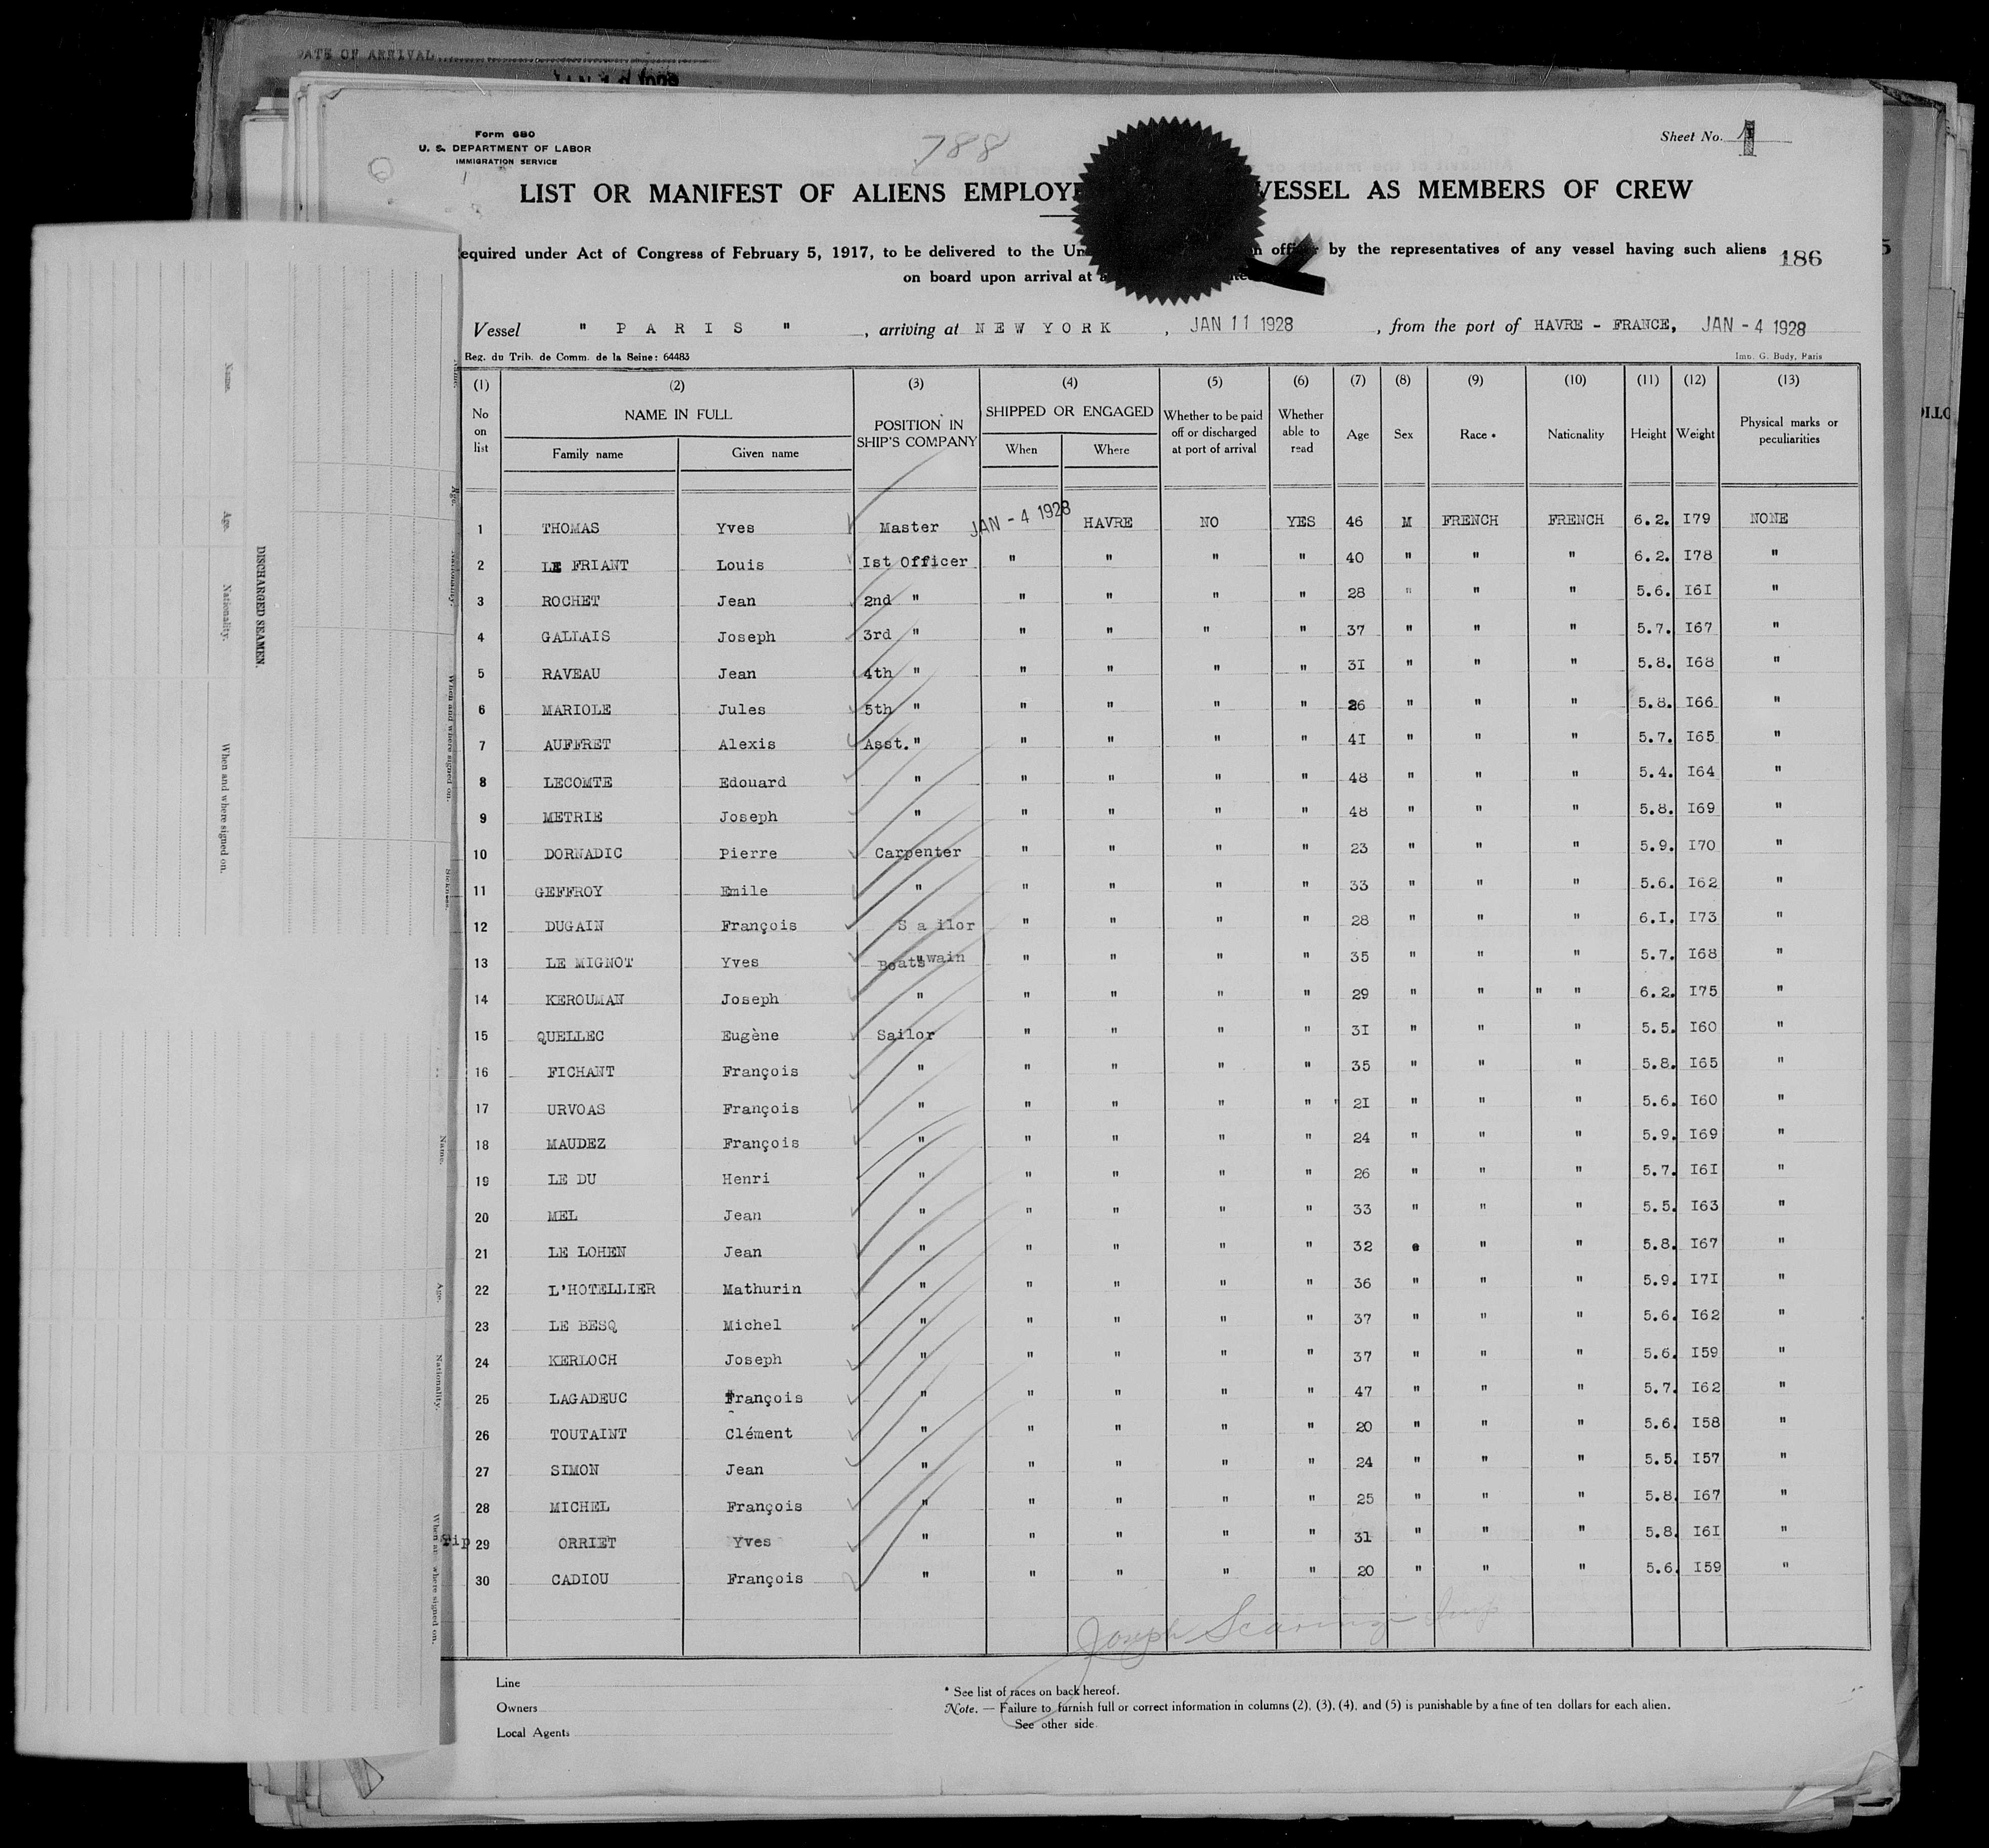 DATE OF ARRIVAL
Form 680
U. S. DEPARTMENT OF LABOR
IMMIGRATION SERVICE
788
Sheet No. 1
LIST OR MANIFEST OF ALIENS EMPLOYE VESSEL AS MEMBERS OF CREW
equired under Act of Congress of February 5, 1917, to be delivered to the Un officer by the representatives of any vessel having such aliens 186
on board upon arrival at
Vessel " P A R I S " , arriving at N E W Y O R K , JAN 11 1928 , from the port of HAVRE - FRANCE, JAN - 4 1928
Reg. du Trib. de Comm. de la Seine: 64483 Imp. G. Budy, Paris
(1) (2) (3) (4) (5) (6) (7) (8) (9) (10) (11) (12) (13)
No on list NAME IN FULL Family name Given name POSITION IN SHIP'S COMPANY SHIPPED OR ENGAGED When Where Whether to be paid off or discharged at port of arrival Whether able to read Age Sex Race * Nationality Height Weight Physical marks or peculiarities
1 THOMAS Yves Master JAN - 4 1928 HAVRE NO YES 46 M FRENCH FRENCH 6.2. I79 NONE
2 LE FRIANT Louis Ist Officer " " " " 40 " " " 6.2. I78 "
3 ROCHET Jean 2nd " " " " " 28 " " " 5.6. I6I "
4 GALLAIS Joseph 3rd " " " " " 37 " " " 5.7. I67 "
5 RAVEAU Jean 4th " " " " " 3I " " " 5.8. I68 "
6 MARIOLE Jules 5th " " " " " 26 " " " 5.8. I66 "
7 AUFFRET Alexis Asst. " " " " " 4I " " " 5.7. I65 "
8 LECOMTE Edouard " " " " " 48 " " " 5.4. I64 "
9 METRIE Joseph " " " " " 48 " " " 5.8. I69 "
10 DORNADIC Pierre Carpenter " " " " 23 " " " 5.9. I70 "
11 GEFFROY Emile " " " " " 33 " " " 5.6. I62 "
12 DUGAIN François S a ilor " " " " 28 " " " 6.I. I73 "
13 LE MIGNOT Yves Boatswain " " " " 35 " " " 5.7. I68 "
14 KEROUMAN Joseph " " " " " 29 " " " " 6.2. I75 "
15 QUELLEC Eugène Sailor " " " " 3I " " " 5.5. I60 "
16 FICHANT François " " " " " 35 " " " 5.8. I65 "
17 URVOAS François " " " " " " 2I " " " 5.6. I60 "
18 MAUDEZ François " " " " " 24 " " " 5.9. I69 "
19 LE DU Henri " " " " " 26 " " " 5.7. I6I "
20 MEL Jean " " " " " 33 " " " 5.5. I63 "
21 LE LOHEN Jean " " " " " 32 " " " 5.8. I67 "
22 L'HOTELLIER Mathurin " " " " " 36 " " " 5.9. I7I "
23 LE BESQ Michel " " " " " 37 " " " 5.6. I62 "
24 KERLOCH Joseph " " " " " 37 " " " 5.6. I59 "
25 LAGADEUC François " " " " " 47 " " " 5.7. I62 "
26 TOUTAINT Clément " " " " " 20 " " " 5.6. I58 "
27 SIMON Jean " " " " " 24 " " " 5.5. I57 "
28 MICHEL François " " " " " 25 " " " 5.8. I67 "
29 ORRIET Yves " " " " " 31 " " " 5.8. I6I "
30 CADIOU François " " " " " 20 " " " 5.6. I59 "
Joseph
Line
Owners
Local Agents
* See list of races on back hereof.
Note. — Failure to furnish full or correct information in columns (2), (3), (4), and (5) is punishable by a fine of ten dollars for each alien.
See other side.
DISCHARGED SEAMEN.
Name. Age. Nationality. When and where signed on.
Name. Age. Nationality. When and where signed on. Sickness.
Name. Age. Nationality. When and where signed on.